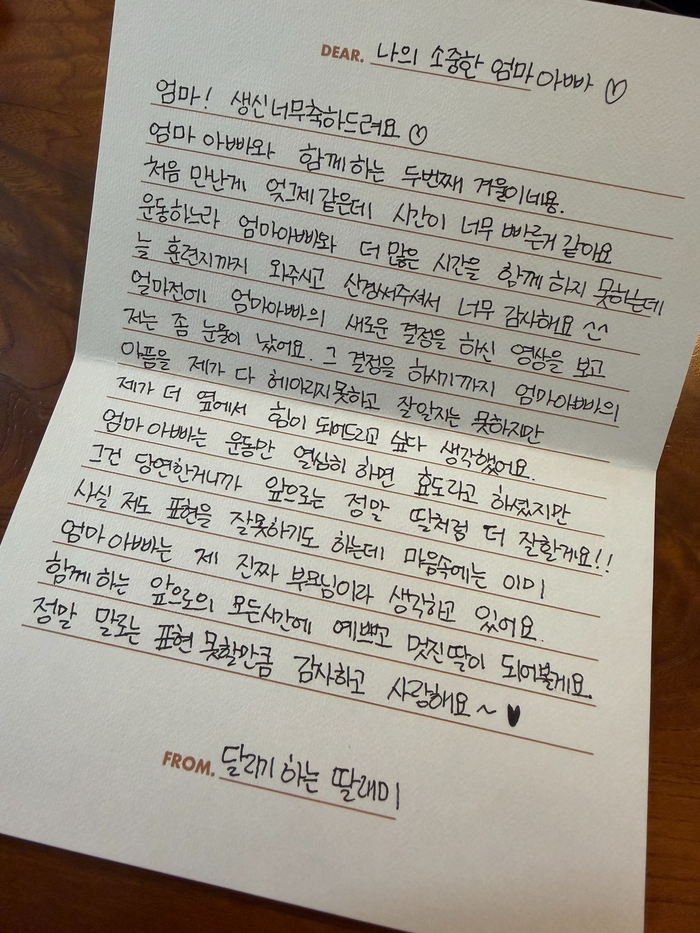 DEAR. 나의 소중한 엄마아빠 ♡
엄마! 생신너무축하드려요 ♡
엄마 아빠와 함께하는 두번째 겨울이네용.
처음 만난게 엊그제같은데 시간이 너무 빠른거 같아요
운동하느라 엄마아빠와 더 많은 시간을 함께 하지 못하는데
늘 훈련지까지 와주시고 신경써주셔서 너무 감사해요 ^^
얼마전에 엄마아빠의 새로운 결정을 하신 영상을 보고
저는 좀 눈물이 났어요. 그 결정을 하시기까지 엄마아빠의
아픔을 제가 다 헤아리지못하고 잘알지는 못하지만
제가 더 옆에서 힘이 되어드리고 싶다 생각했어요.
엄마 아빠는 운동만 열심히 하면 효도라고 하셨지만
그건 당연한거니까 앞으로는 정말 딸처럼 더 잘할게요!!
사실 저도 표현을 잘못하기도 하는데 마음속에는 이미
엄마 아빠는 제 진짜 부모님이라 생각하고 있어요.
함께 하는 앞으로의 모든시간에 예쁘고 멋진딸이 되어볼게요.
정말 말로는 표현 못할만큼 감사하고 사랑해요~ ♥
FROM. 달리기 하는 딸래미